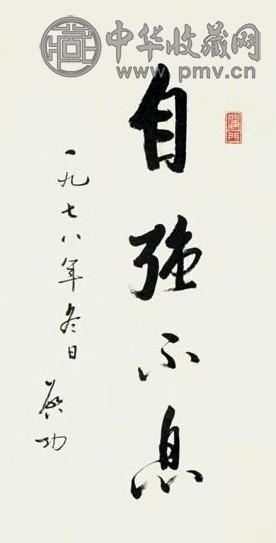 中华收藏网
www.pmv.cn
自强不息
一九七八年冬日 启功